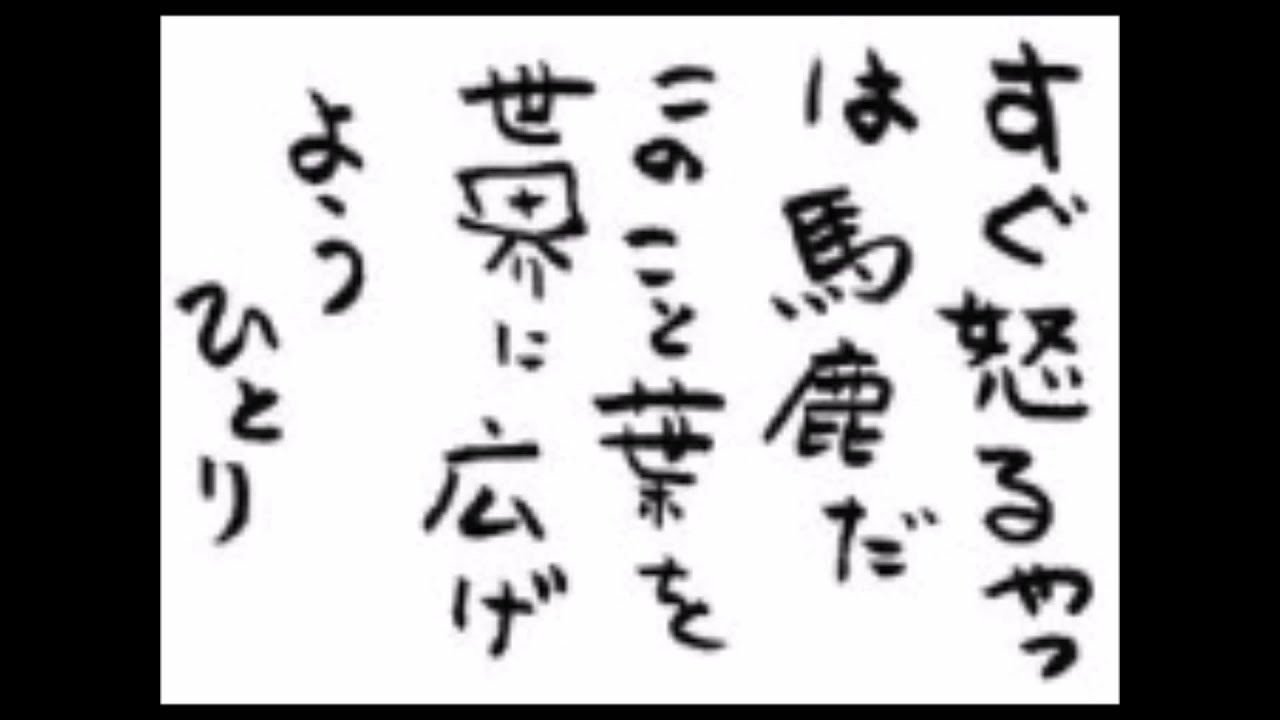 すぐ怒るやつ
は馬鹿だ
このこと葉を
世界に広げ
よう
ひとり